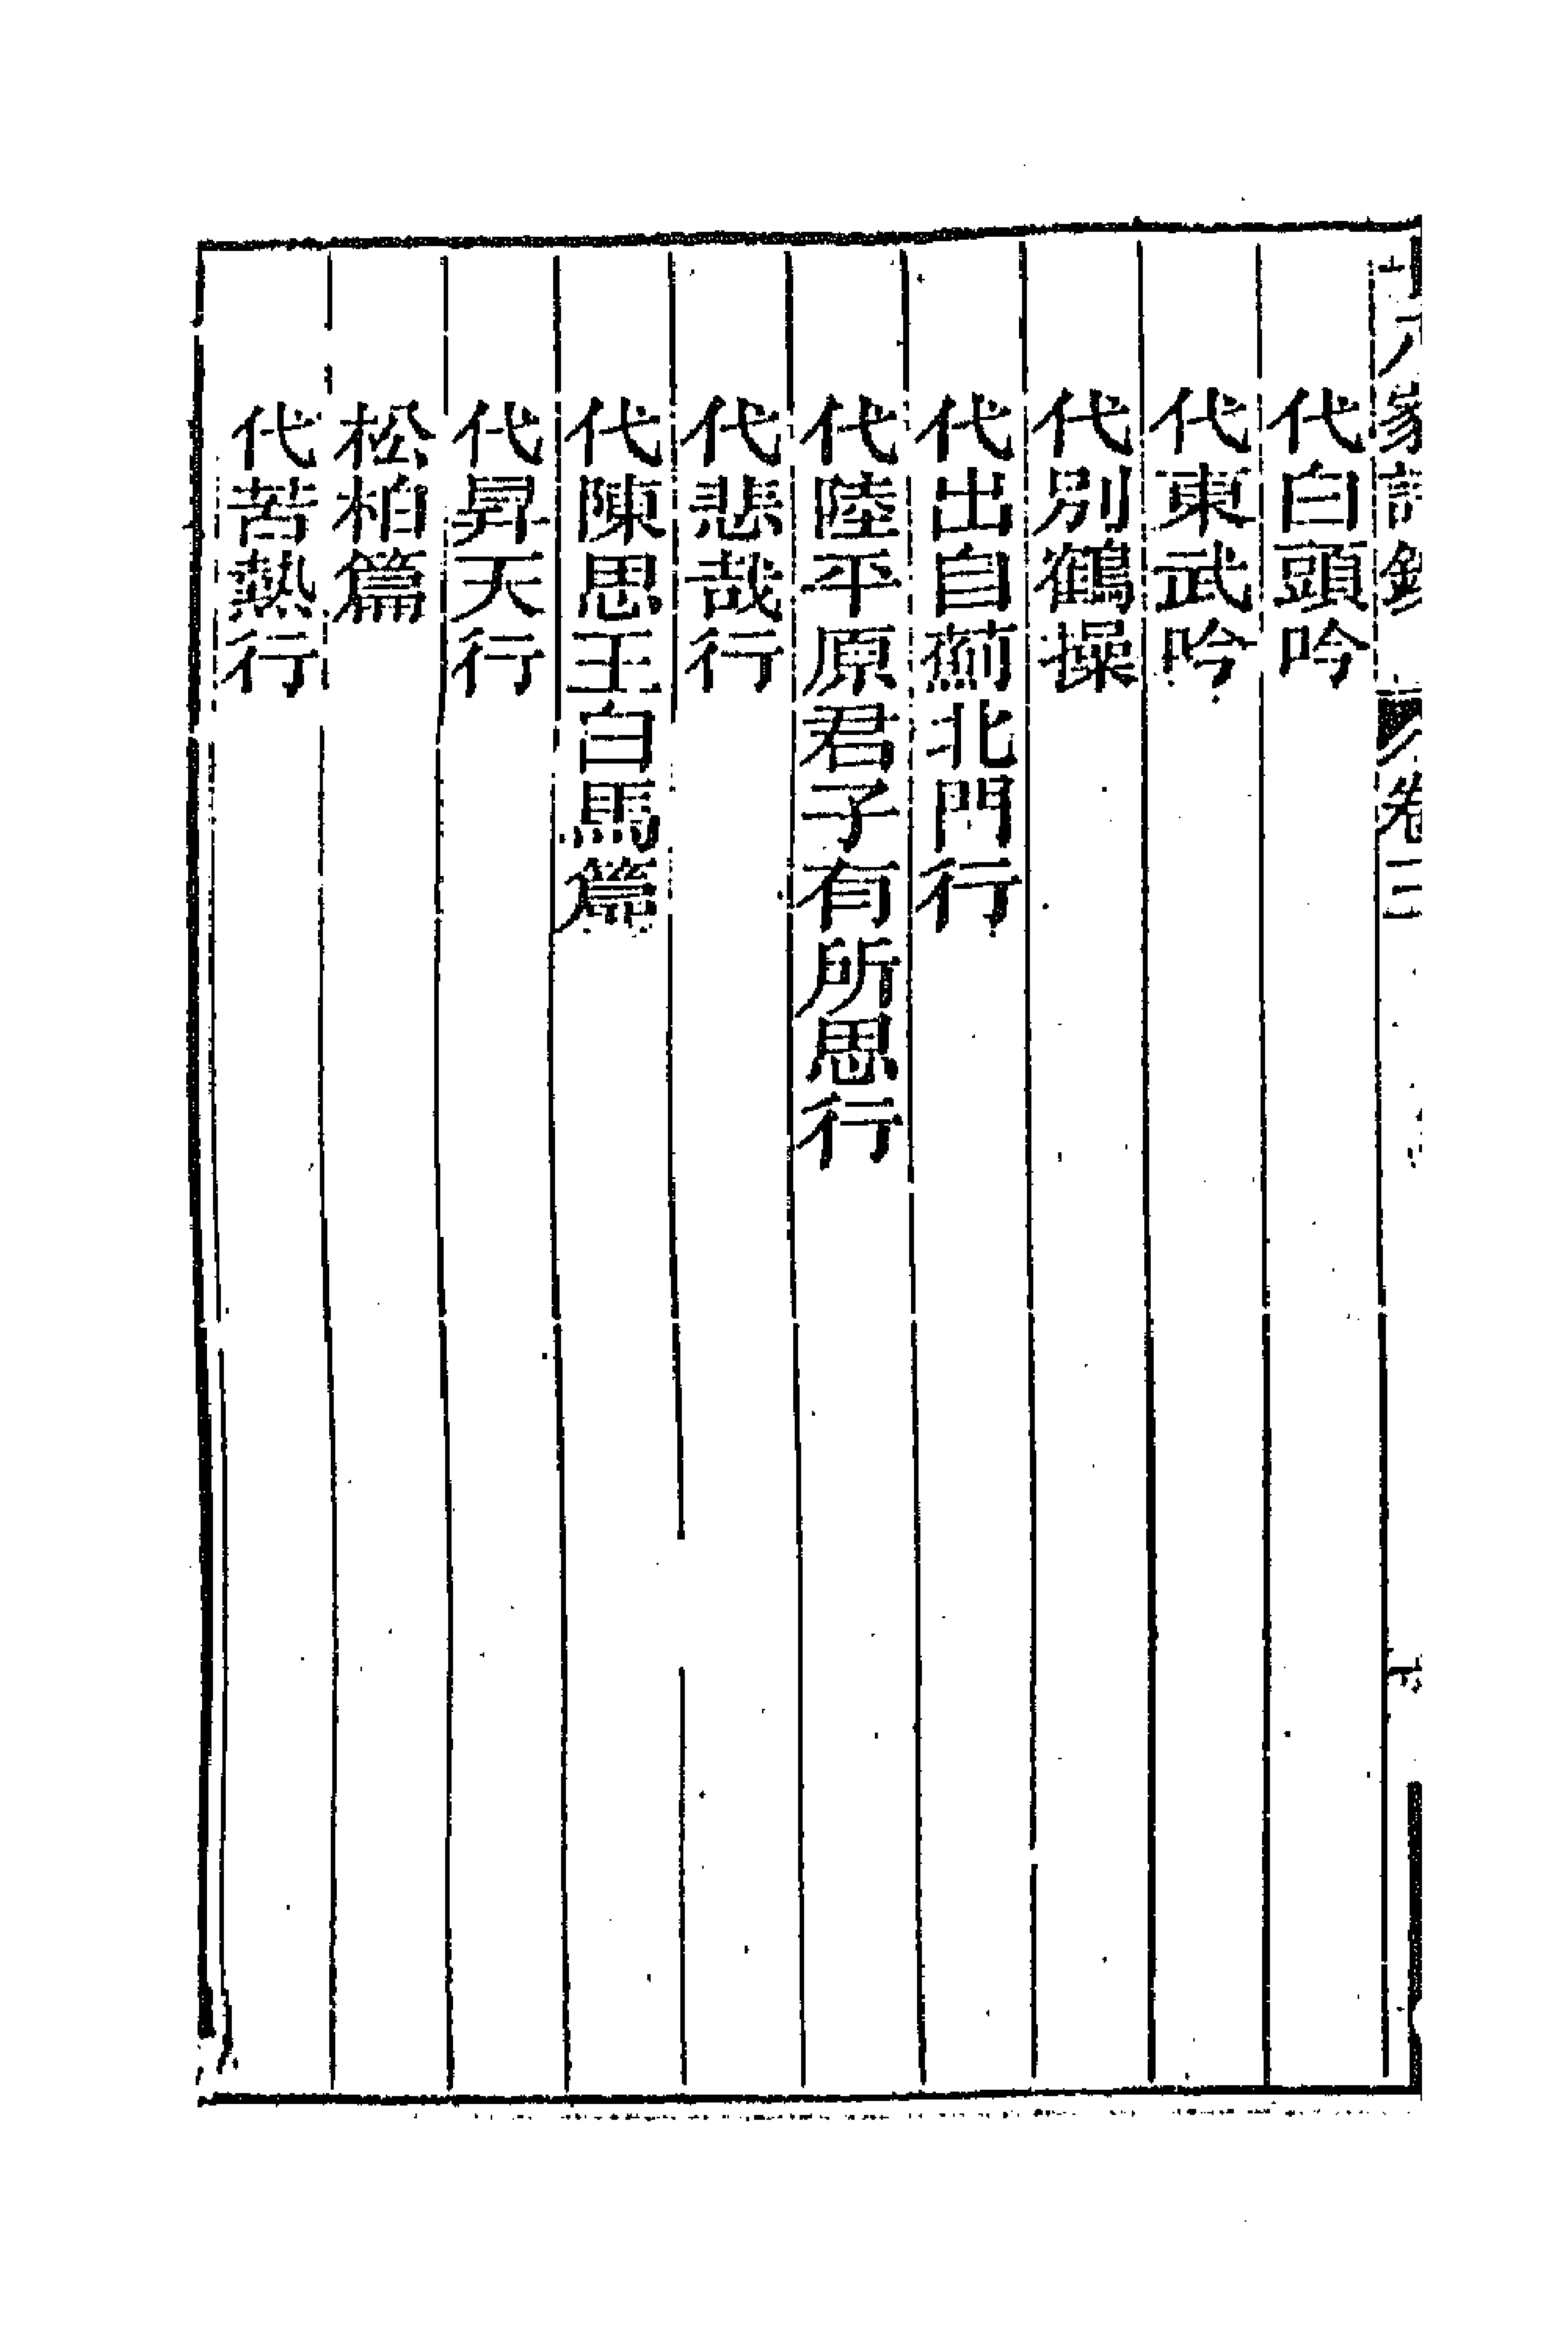 十八家詩鈔 卷三
代白頭吟
代東武吟
代別鶴操
代出自薊北門行
代陸平原君子有所思行
代悲哉行
代陳思王白馬篇
代昇天行
松柏篇
代苦熱行